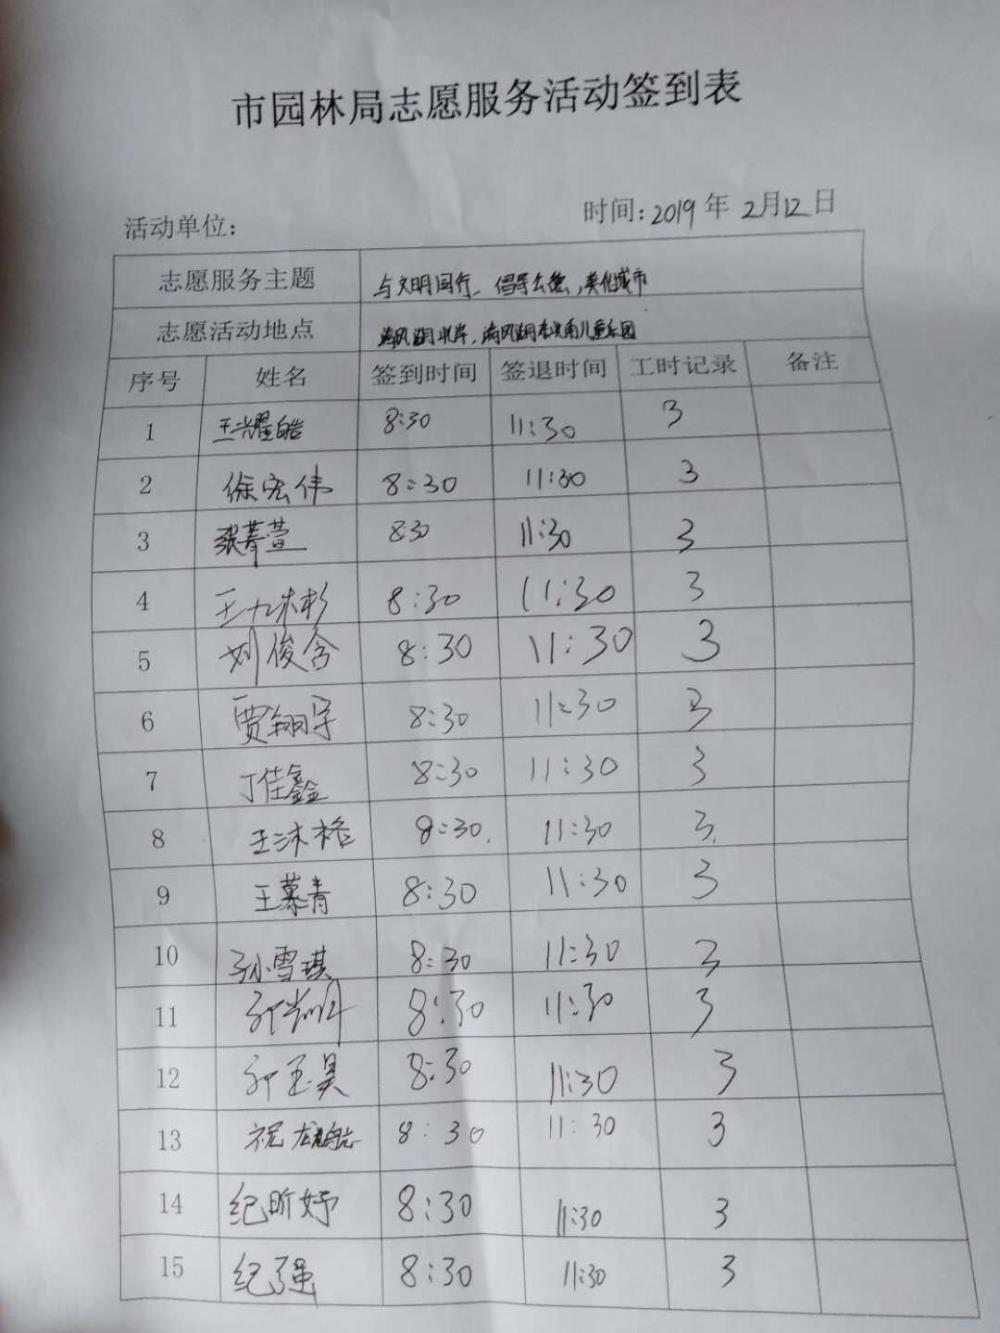 市园林局志愿服务活动签到表
活动单位: 时间: 2019 年 2月12日
志愿服务主题 与文明同行、倡导公德,美化城市
志愿活动地点 儿童乐园
序号 姓名 签到时间 签退时间 工时记录 备注
1 王耀皓 8:30 11:30 3
2 徐宏伟 8:30 11:30 3
3 张菁萱 8:30 11:30 3
4 8:30 11:30 3
5 刘俊含 8:30 11:30 3
6 贾翎宇 8:30 11:30 3
7 丁佳鑫 8:30 11:30 3
8 王沐格 8:30. 11:30 3.
9 王慕青 8:30 11:30 3
10 孙雪琪 8:30 11:30 3
11 8:30 11:30 3
12 8:30 11:30 3
13 祝 8:30 11:30 3
14 纪昕妤 8:30 11:30 3
15 纪强 8:30 11:30 3